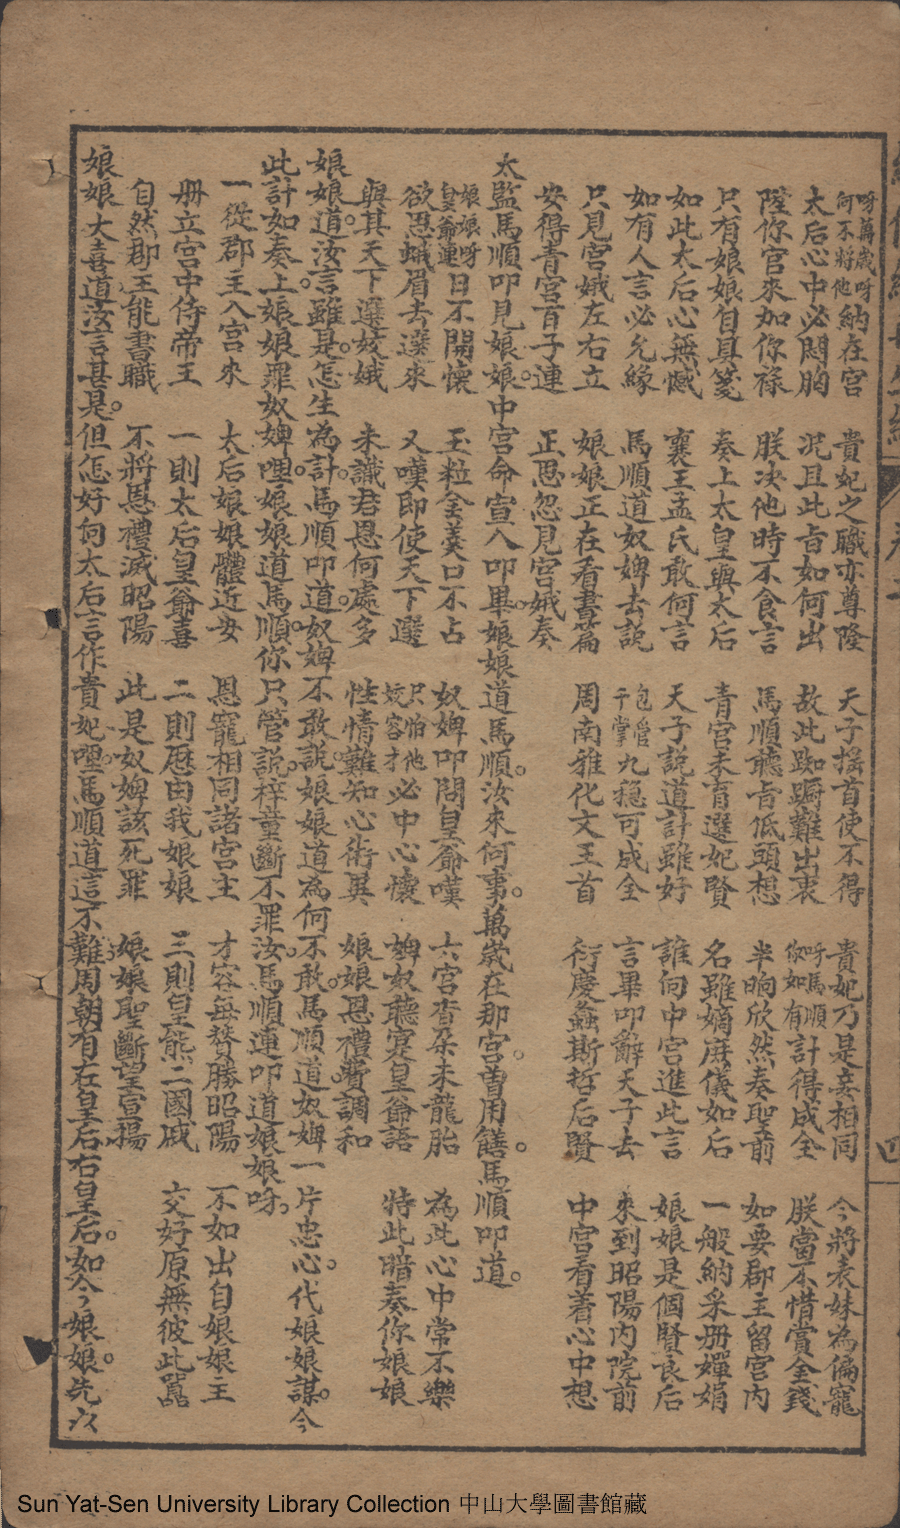 呀萬歲呀何不將他納在宮 貴妃之職亦尊隆 天子搖首使不得 貴妃乃是妾相同 今將表妹為偏寵
太后心中必悶胸 况且此旨如何出 故此踟躕難出衷 呀馬順你如有計得成全 朕當不惜賞金錢
陞你官來加你祿 朕决他時不食言 馬順聽旨低頭想 半晌欣然奏聖前 如要郡主留宮内
只有娘娘自具箋 奏上太皇與太后 青宮未育選妃賢 名雖嫡庶儀如后 一般納采册嬋娟
如此太后心無憾 襄王孟氏敢何言 天子説道計雖好 誰向中宮進此言 娘娘是個賢良后
如有人言必允緣 馬順道奴婢去説 包管千掌九穩可成全 言畢叩辭天子去 來到昭陽内院前
只見宮娥左右立 娘娘正在看書篇 周南雅化文王首 衍慶螽斯哲后賢 中宮看着心中想
安得青宮百子連 正思忽見宮娥奏
太監馬順叩見娘娘。中宮命宣入叩畢。娘娘道馬順。汝來何事。萬歲在那宮。曾用饍。馬順叩道。
娘娘呀皇爺連日不開懷 玉粒金羹口不占 奴婢叩問皇爺嘆 六宮杳杂未龍胎 為此心中常不樂
欲思蛾眉去選來 又嘆即使天下選 只怕他姣容才必中心懷 婢奴聽寔皇爺語 特此暗奏你娘娘
與其天下選姣娥 未識君恩何處多 性情難知心術異 娘娘恩禮費調和
娘娘道。汝言雖是。怎生為計。馬順叩道。奴婢不敢説。娘娘道為何不敢。馬順道。奴婢一片忠心。代娘娘謀。今
此計如奏上娘娘罪奴婢哩。娘娘道馬順。你只管説。梓童斷不罪汝。馬順連叩道娘娘呀。
一從郡主入宮來 太后娘娘體近安 恩寵相同諸宮主 才容每賛勝昭陽 不如出自娘娘主
册立宮中侍帝王 一則太后皇爺喜 二則歷由我娘娘 三則皇熊二國戚 交好原無彼此嚣
自然郡王能書職 不將恩禮滅昭陽 此是奴婢該死罪 娘娘聖斷望宣揚
娘娘大喜道汝言甚是。但怎好向太后言作貴妃哩。馬順道這不難周朝有左皇后右皇后。如今娘娘。先以
四
Sun Yat-Sen University Library Collection 中山大學圖書館藏